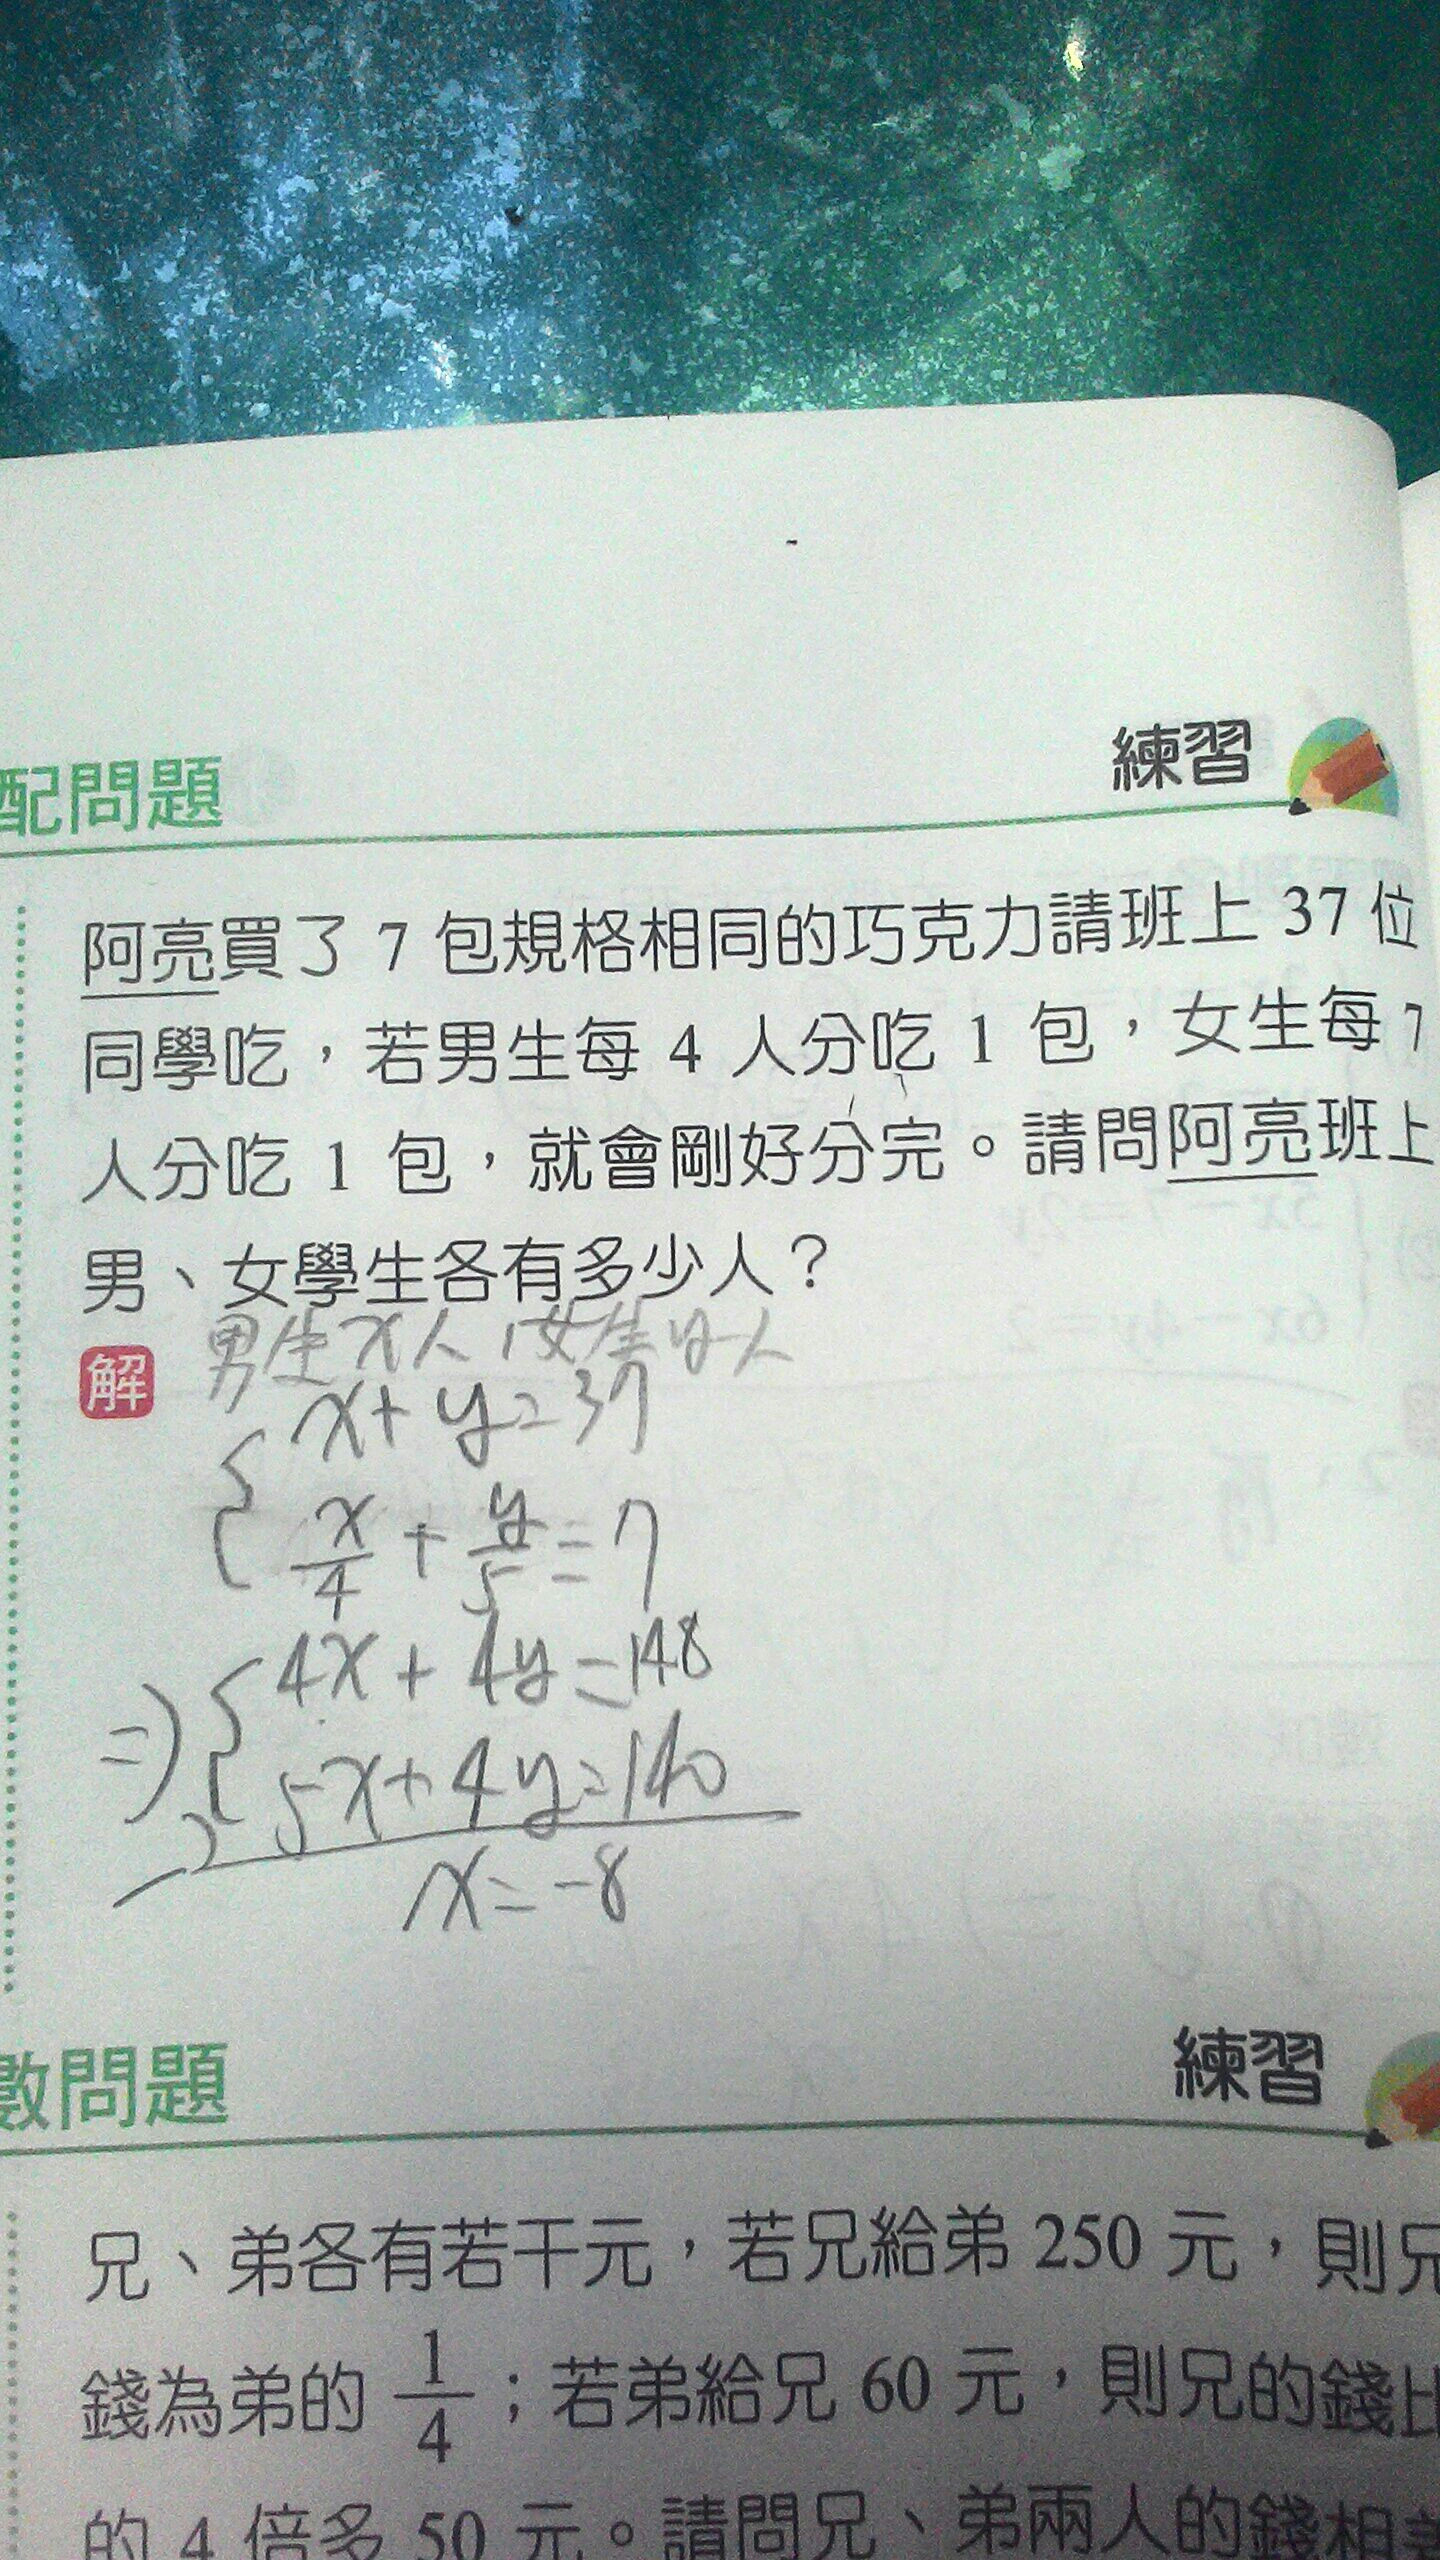 配問題
練習
阿亮買了 7 包規格相同的巧克力請班上 37 位
同學吃，若男生每 4 人分吃 1 包，女生每
人分吃 1 包，就會剛好分完。請問阿亮班上
男、女學生各有多少人？
解
男生x人,女生y人
x+y=37
x/4+y/5=7
⇒{4x+4y=148
5x+4y=140
-)
x=-8
數問題
練習
兄、弟各有若干元，若兄給弟 250 元，則兄
錢為弟的 1/4；若弟給兄 60 元，則兄的錢比
的 4 倍多 50 元。請問兄、弟兩人的錢相差